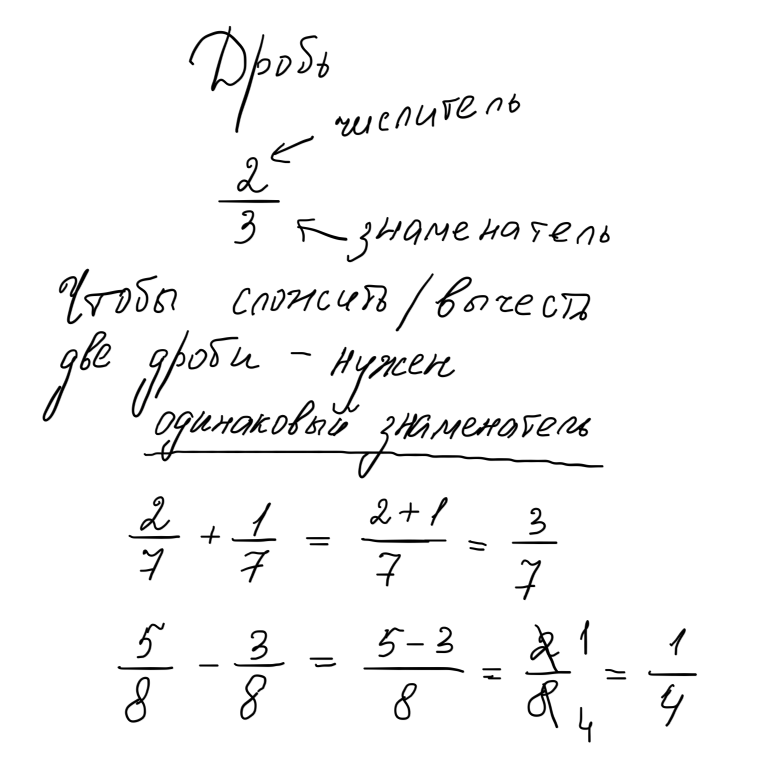 Дробь
числитель
2/3
знаменатель
Чтобы сложить/вычесть
две дроби - нужен
одинаковый знаменатель
2/7 + 1/7 = (2+1)/7 = 3/7
5/8 - 3/8 = (5-3)/8 = 2/8 1 4 = 1/4